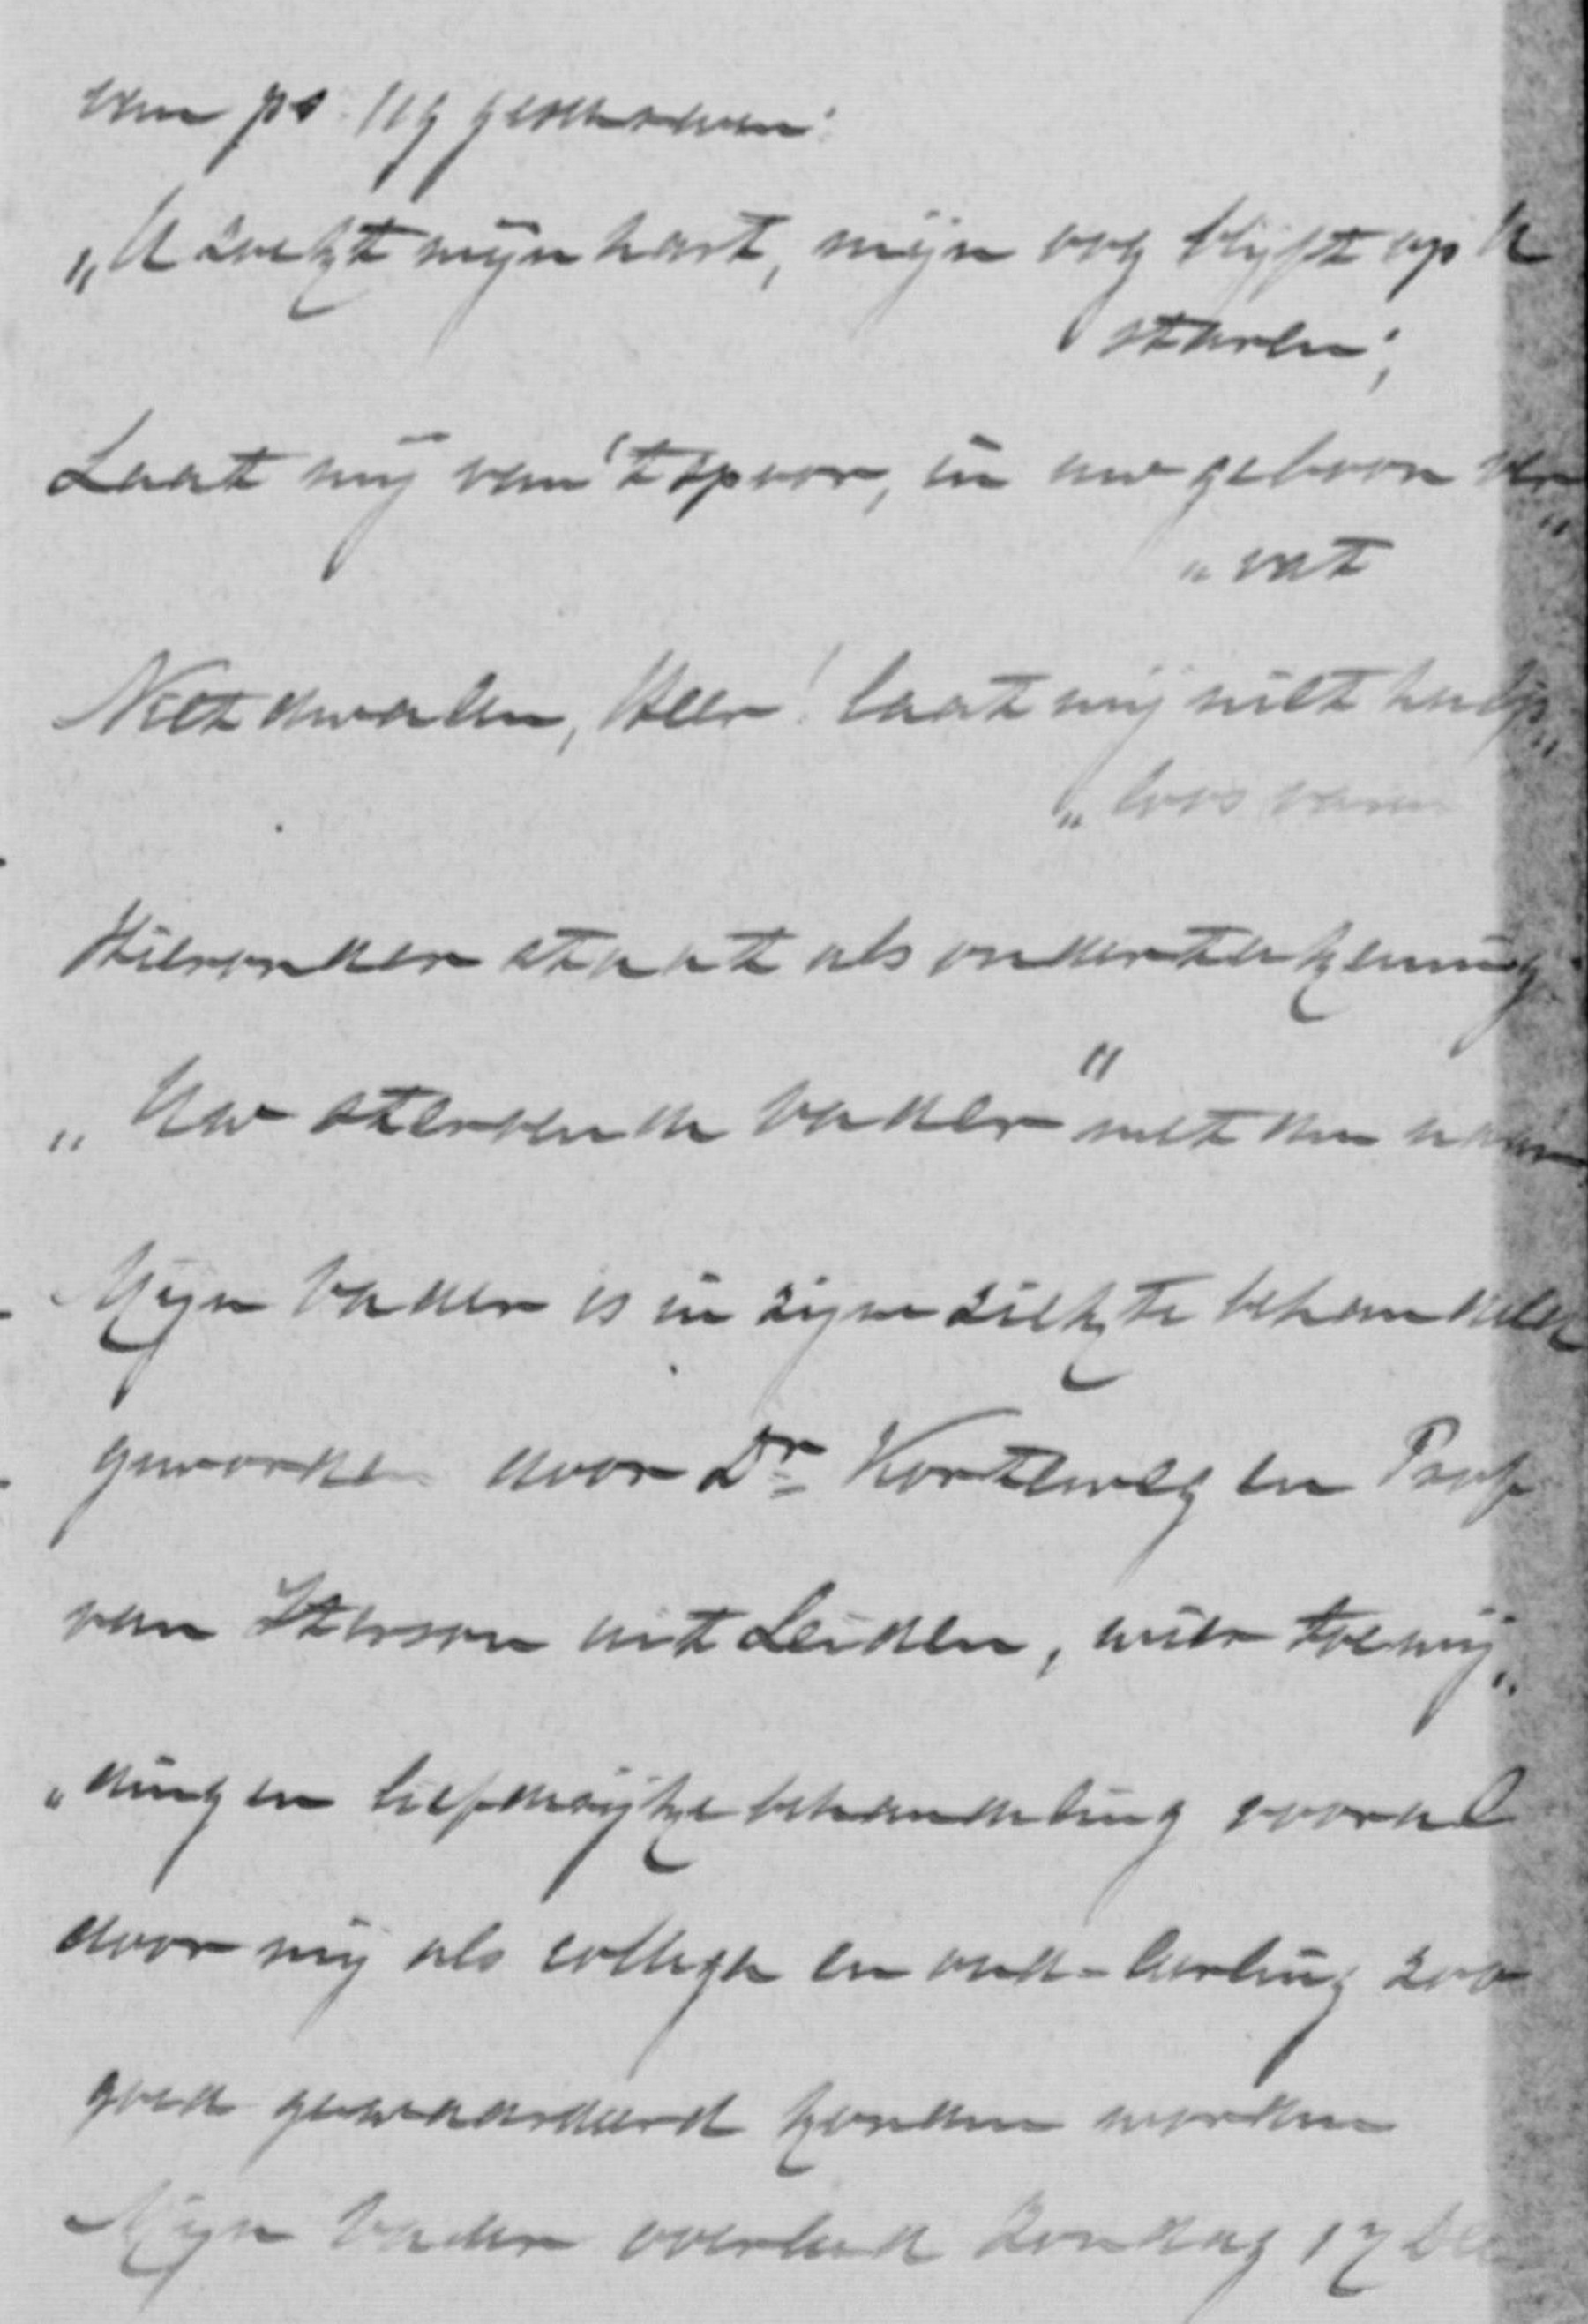 van ps. 119 geschreven:
„U zoekt mijn hart, mijn oog blijft op U
staren;
Laat mij van 't spoor, in uw geboon ver„
„vat
Niet dwalen, Heer! laat mij niet hulp„
„loos varen
Hieronder staat als onderteekening
„Uw stervende vader" met den naam
Mijn vader is in zijn ziekte behandeld
geworden door Dr. Korteweg en Prof
van Iterson uit Leiden, wier toewij„
„ding en liefderijke behandeling vooral
door mij als collega en oud-leerling zoo
goed gewaardeerd konden worden
Mijn vader overleed Zondag 17 Dec